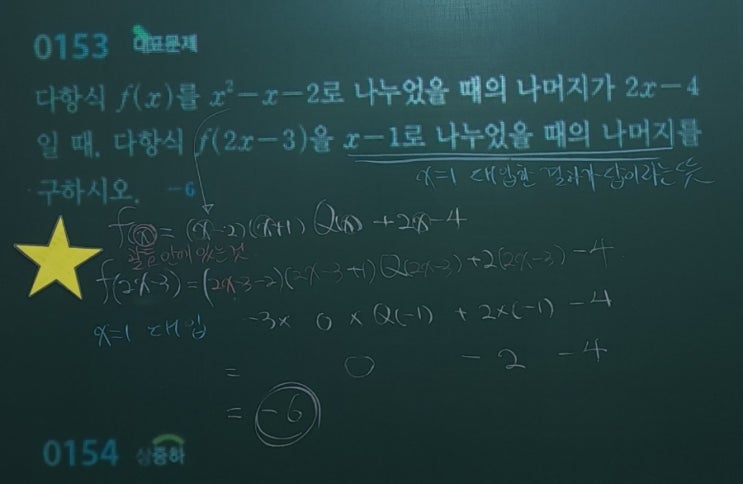 0153 대표문제
다항식 f(x)를 x²-x-2로 나누었을 때의 나머지가 2x-4
일 때, 다항식 f(2x-3)을 x-1로 나누었을 때의 나머지를
구하시오. -6
x=1 대입한 결과가 답이라는 뜻
f(x) = (x-2)(x+1) Q(x) + 2x-4
괄호 안에 있는 것
f(2x-3) = (2x-3-2)(2x-3+1)Q(2x-3)+2(2x-3)-4
x=1 대입 -3× 0 × Q(-1) + 2×(-1) -4
= 0 -2 -4
= -6
0154 상중하